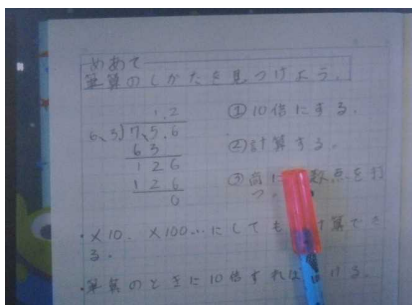 めあて
筆算のしかたを見つけよう。
1.2
6.3)7.5.6
63
126
126
0
①10倍にする。
②計算する。
③商に 数点を打
つ。
・×10、×100…にしても 算でき
る。
・筆算のときに10倍すれば ける。